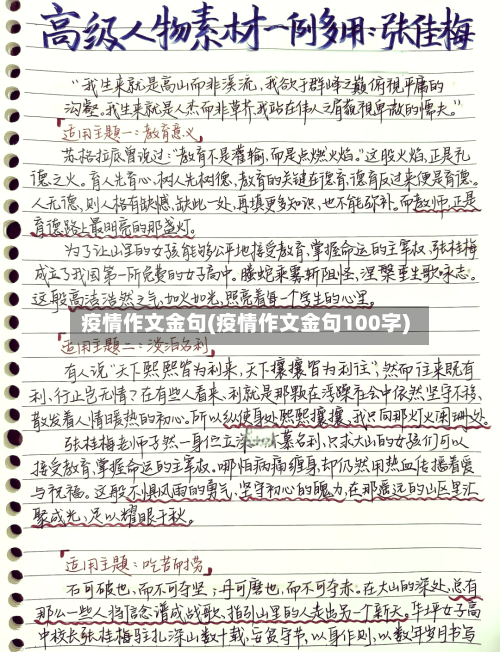 高级人物素材一例多用:张佳梅
“我生来就是高山而非溪流,我欲于群峰之巅俯视平庸的
沟壑。我生来就是人杰而非草芥,我站在伟人之肩藐视卑微的懦夫。”
适用主题一:教育意义
苏格拉底曾说过:“教育不是灌输,而是点燃火焰。”这股火焰,正是礼
德之火。育人先育心,树人先树德,教育的关键在德育,德育反过来便是育德。
人无德,则人格有缺憾,缺此一处,再填更多知识,也不能弥补。而教师,正是
育德路上最明亮的那盏灯。
为了让山里的女孩能够公平地接受教育,掌握命运的主宰权,张桂梅
成立了我国第一所免费的女子高中。腾蛇乘雾斩阻怪,涅槃重生歌咏志。
这般高洁浩然之气,如火如光,照亮着每一个学生的心里。
疫情作文金句(疫情作文金句100字)
适用主题二:淡泊名利
有人说“天下熙熙皆为利来,天下攘攘皆为利往”,然而往来既有
利,行止岂无情?在有些人看来,利就是那颗在浮躁社会中依然坚守不移、
散发着人情暖热的初心。所以纵使身处熙熙攘攘,我只向那灯火阑珊处。
张桂梅老师孑然一身但立 慕名利,只求大山的女孩们可以
接受教育,掌握命运的主宰权。哪怕病痛缠身却仍然用热血传播着爱
与祝福。这般不惧风雨的勇气,坚守初心的魄力,在那遥远的山区里汇
聚成光,足以耀眼千秋。
适用主题:吃苦耐劳
石可破也,而不可夺坚;丹可磨也,而不可夺赤。在大山的深处,总有
那么一些人将信念谱成战歌,指引山里的人走出另一个新天。华坪女子高
中校长张桂梅驻扎深山数十载,安贫守节,以身作则,以数年岁月书写